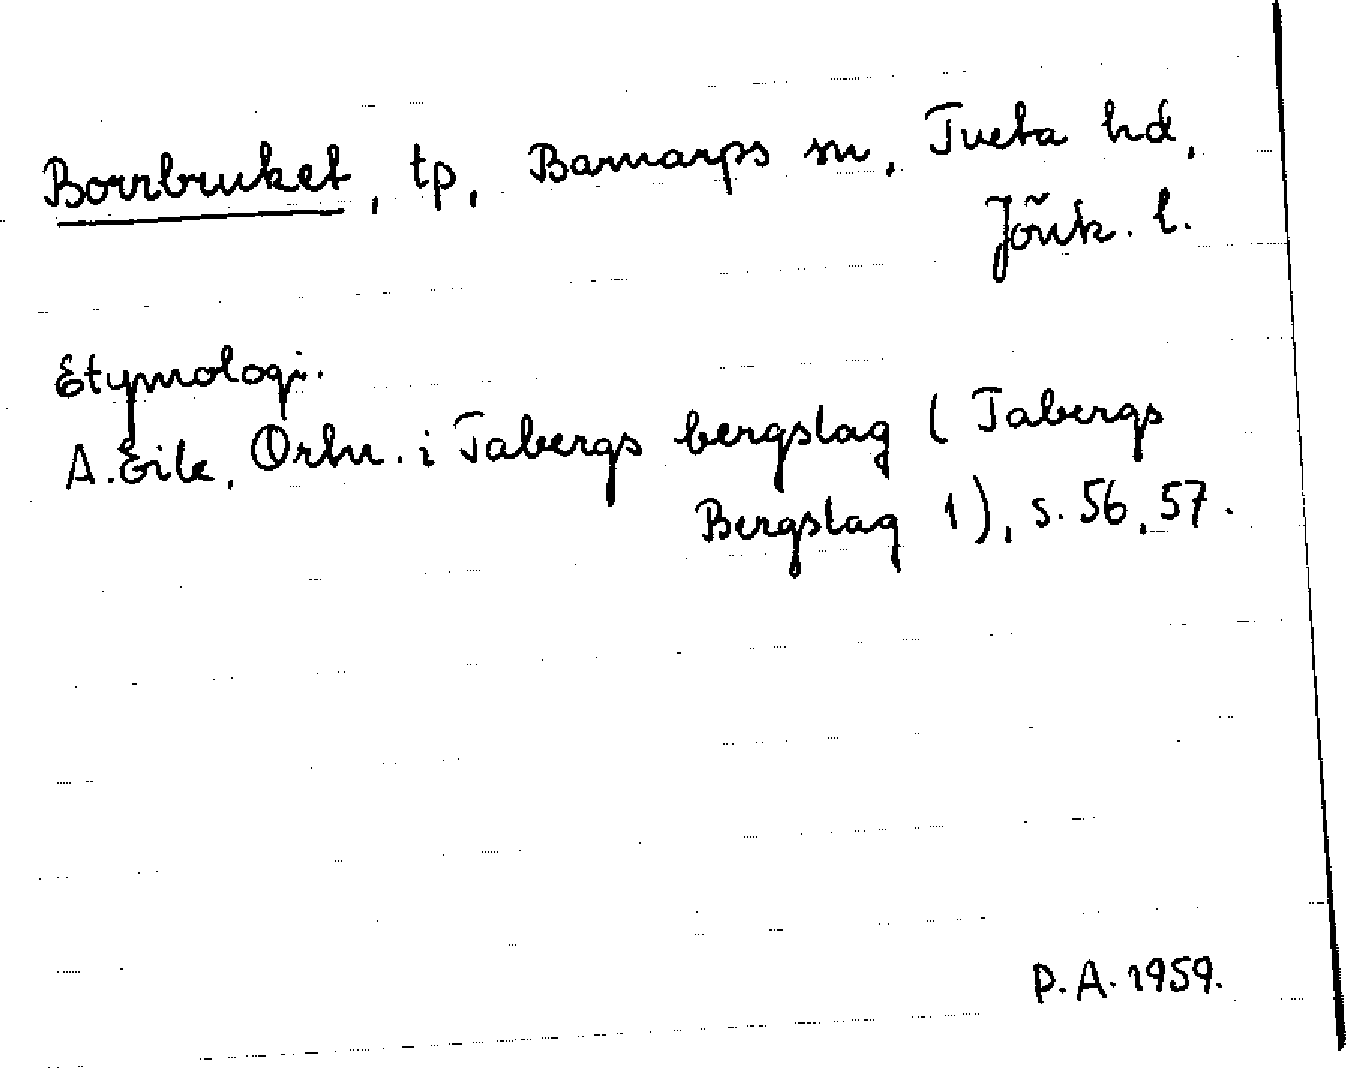 Borrbruket, tp, Barnarps sn, Tveta hd,
Jönk. l.
Etymologi.
A. Eik, Ortn. i Tabergs bergslag (Tabergs
Bergslag 1), s. 56, 57.
P. A. 1959.